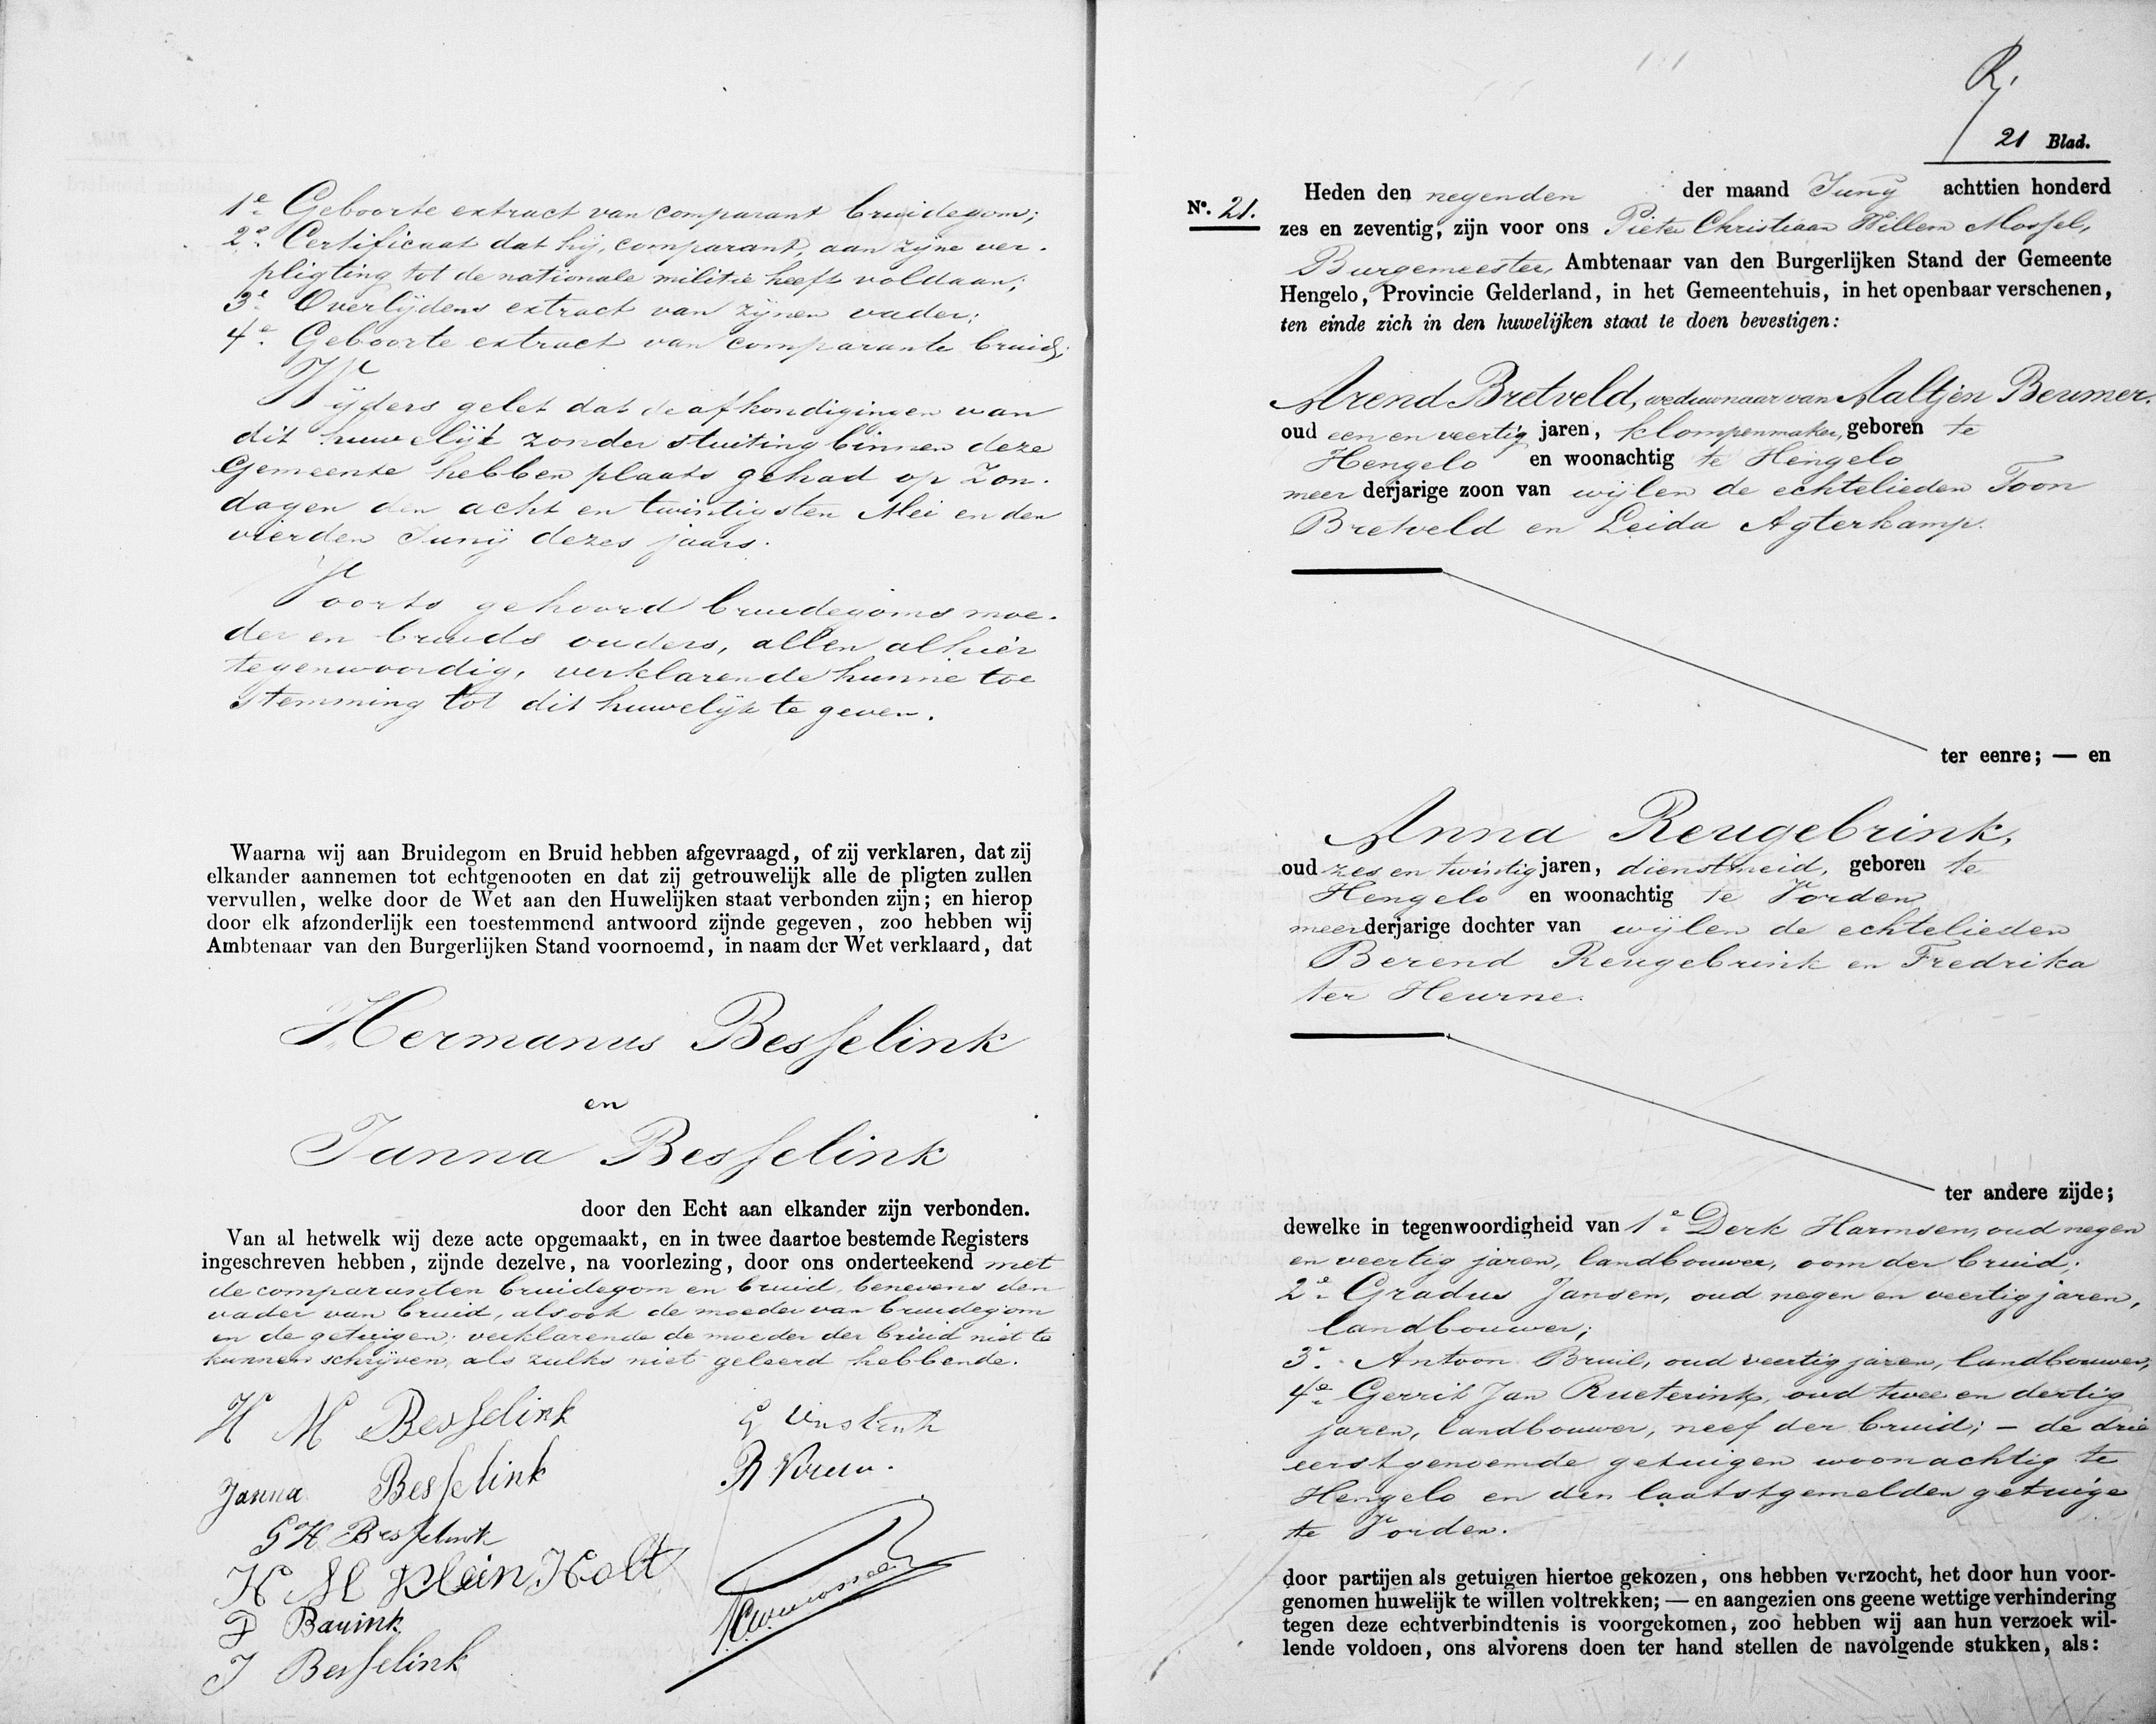 1e. Geboorte extract van comparant bruidegom;
2e. Certificaat dat hij, comparant, aan zijne ver-
pligting tot de nationale militie heeft voldaan;
3e. Overlijdens extract van zijnen vader;
4e. Geboorte extract van comparante bruid;
Wijders gelet dat de afkondigingen van
dit huwelijk zonder stuiting binnen deze
Gemeente hebben plaats gehad op Zon-
dagen den acht en twintigsten Mei en den
vierden Junij dezes jaars.
Voorts gehoord bruidegoms moe-
der en bruids ouders, allen alhier
tegenwoordig, verklarende hunne toe
stemming tot dit huwelijk te geven.
Waarna wij aan Bruidegom en Bruid hebben afgevraagd, of zij verklaren, dat zij
elkander aannemen tot echtgenooten en dat zij getrouwelijk alle de pligten zullen
vervullen, welke door de Wet aan den Huwelijken staat verbonden zijn; en hierop
door elk afzonderlijk een toestemmend antwoord zijnde gegeven, zoo hebben wij
Ambtenaar van den Burgerlijken Stand voornoemd, in naam der Wet verklaard, dat
Hermanus Besselink
en
Janna Besselink
door den Echt aan elkander zijn verbonden.
Van al hetwelk wij deze acte opgemaakt, en in twee daartoe bestemde Registers
ingeschreven hebben, zijnde dezelve, na voorlezing, door ons onderteekend met
de comparanten bruidegom en bruid, benevens den
vader van bruid, alsook de moeder van bruidegom
en de getuigen; verklarende de moeder der bruid niet te
kunnen schrijven, als zulks niet geleerd hebbende.
H M Besselink
Janna Besselink
G H Besselink
H M Klein Holt
D Banink
J Besselink
G
R
R.
21 Blad.
No. 21.
Heden den negenden der maand Junij achttien honderd
zes en zeventig, zijn voor ons Pieter Christiaan Willem Mossel,
Burgemeester, Ambtenaar van den Burgerlijken Stand der Gemeente
Hengelo, Provincie Gelderland, in het Gemeentehuis, in het openbaar verschenen,
ten einde zich in den huwelijken staat te doen bevestigen:
Arend Bretveld, weduwnaar van Aaltjen Beumer.
oud een en veertig jaren, klompenmaker, geboren te
Hengelo en woonachtig te Hengelo
meer derjarige zoon van wijlen de echtelieden Toon
Bretveld en Leida Agterkamp.
ter eenre; — en
Anna Reugebrink,
oud zes en twintig jaren, dienstmeid, geboren te
Hengelo en woonachtig te Vorden
meer derjarige dochter van wijlen de echtelieden
Berend Reugebrink en Fredrika
ter Heurne.
ter andere zijde;
dewelke in tegenwoordigheid van 1e. Derk Harmsen, oud negen
en veertig jaren, landbouwer, oom der bruid;
2e. Gradus Jansen, oud negen en veertig jaren,
landbouwer;
3e. Antoon Bruil, oud veertig jaren, landbouwer,
4e. Gerrit Jan Rueterink, oud twee en dertig
jaren, landbouwer, neef der bruid; - de drie
eerstgenoemde getuigen woonachtig te
Hengelo en den laatstgemelden getuige
te Vorden.
door partijen als getuigen hiertoe gekozen, ons hebben verzocht, het door hun voor-
genomen huwelijk te willen voltrekken; — en aangezien ons geene wettige verhindering
tegen deze echtverbindtenis is voorgekomen, zoo hebben wij aan hun verzoek wil-
lende voldoen, ons alvorens doen ter hand stellen de navolgende stukken, als: